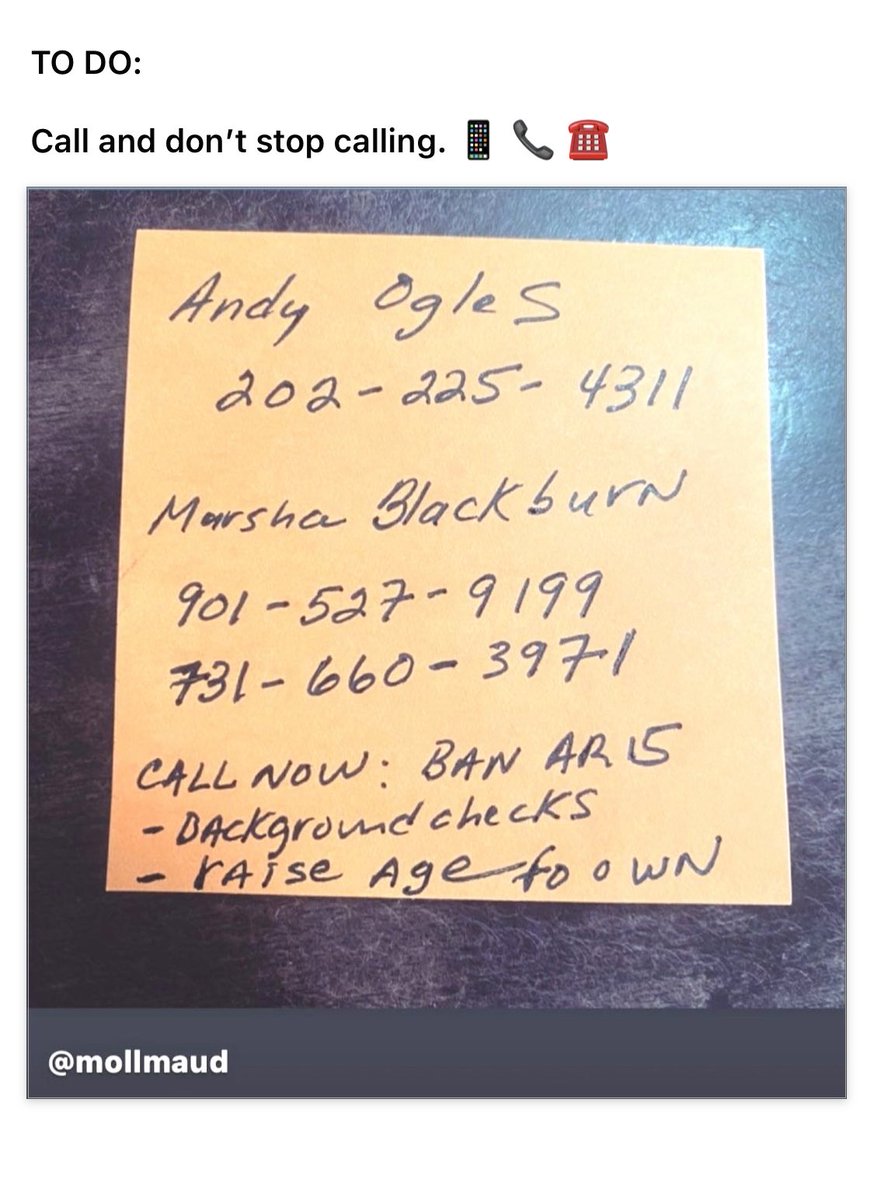 TO DO:
Call and don’t stop calling. 📱 📞 ☎️
Andy Ogles
202-225-4311
Marsha Blackburn
901-527-9199
731-660-3971
CALL NOW: BAN AR15
- BACKground checks
- rAise Age to OWN
@mollmaud